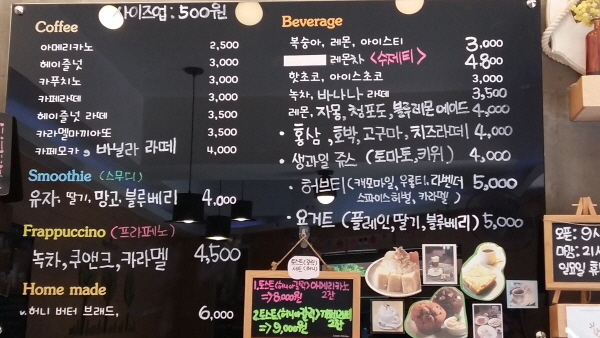 사이즈업 : 500원
Coffee
아메리카노 2,500
헤이즐넛 3,000
카푸치노 3,000
카페라떼 3,000
헤이즐넛 라떼 3,500
카라멜마끼아또 3,500
카페모카, 바닐라 라떼 4,000
Smoothie (스무디)
유자, 딸기, 망고, 블루베리 4,000
Frappuccino (프라페노)
녹차, 쿠앤크, 카라멜 4,500
Home made
v. 허니 버터 브래드, 6,000
Beverage
복숭아, 레몬, 아이스티 3,000
레몬차 <수제티> 4,800
핫초코, 아이스초코 3,000
녹차, 바나나 라떼 3,500
레몬, 자몽, 청포도, 블루레몬에이드 4,000
• 홍삼, 호박, 고구마, 치즈라떼 4,000
• 생과일 쥬스 (토마토, 키위) 4,000
• 허브티 (캐모마일, 우롱티, 라벤더 5,000
스파이스허벌, 카라멜)
• 요거트 (플레인, 딸기, 블루베리) 5,000
1. 토스트(허니or갈릭) 아메리카노 2잔
=> 8,000원
2. 토스트(허니or갈릭) 카페라떼 2잔
=> 9,000원
오픈: 9시
마감: 21시
일요일 휴